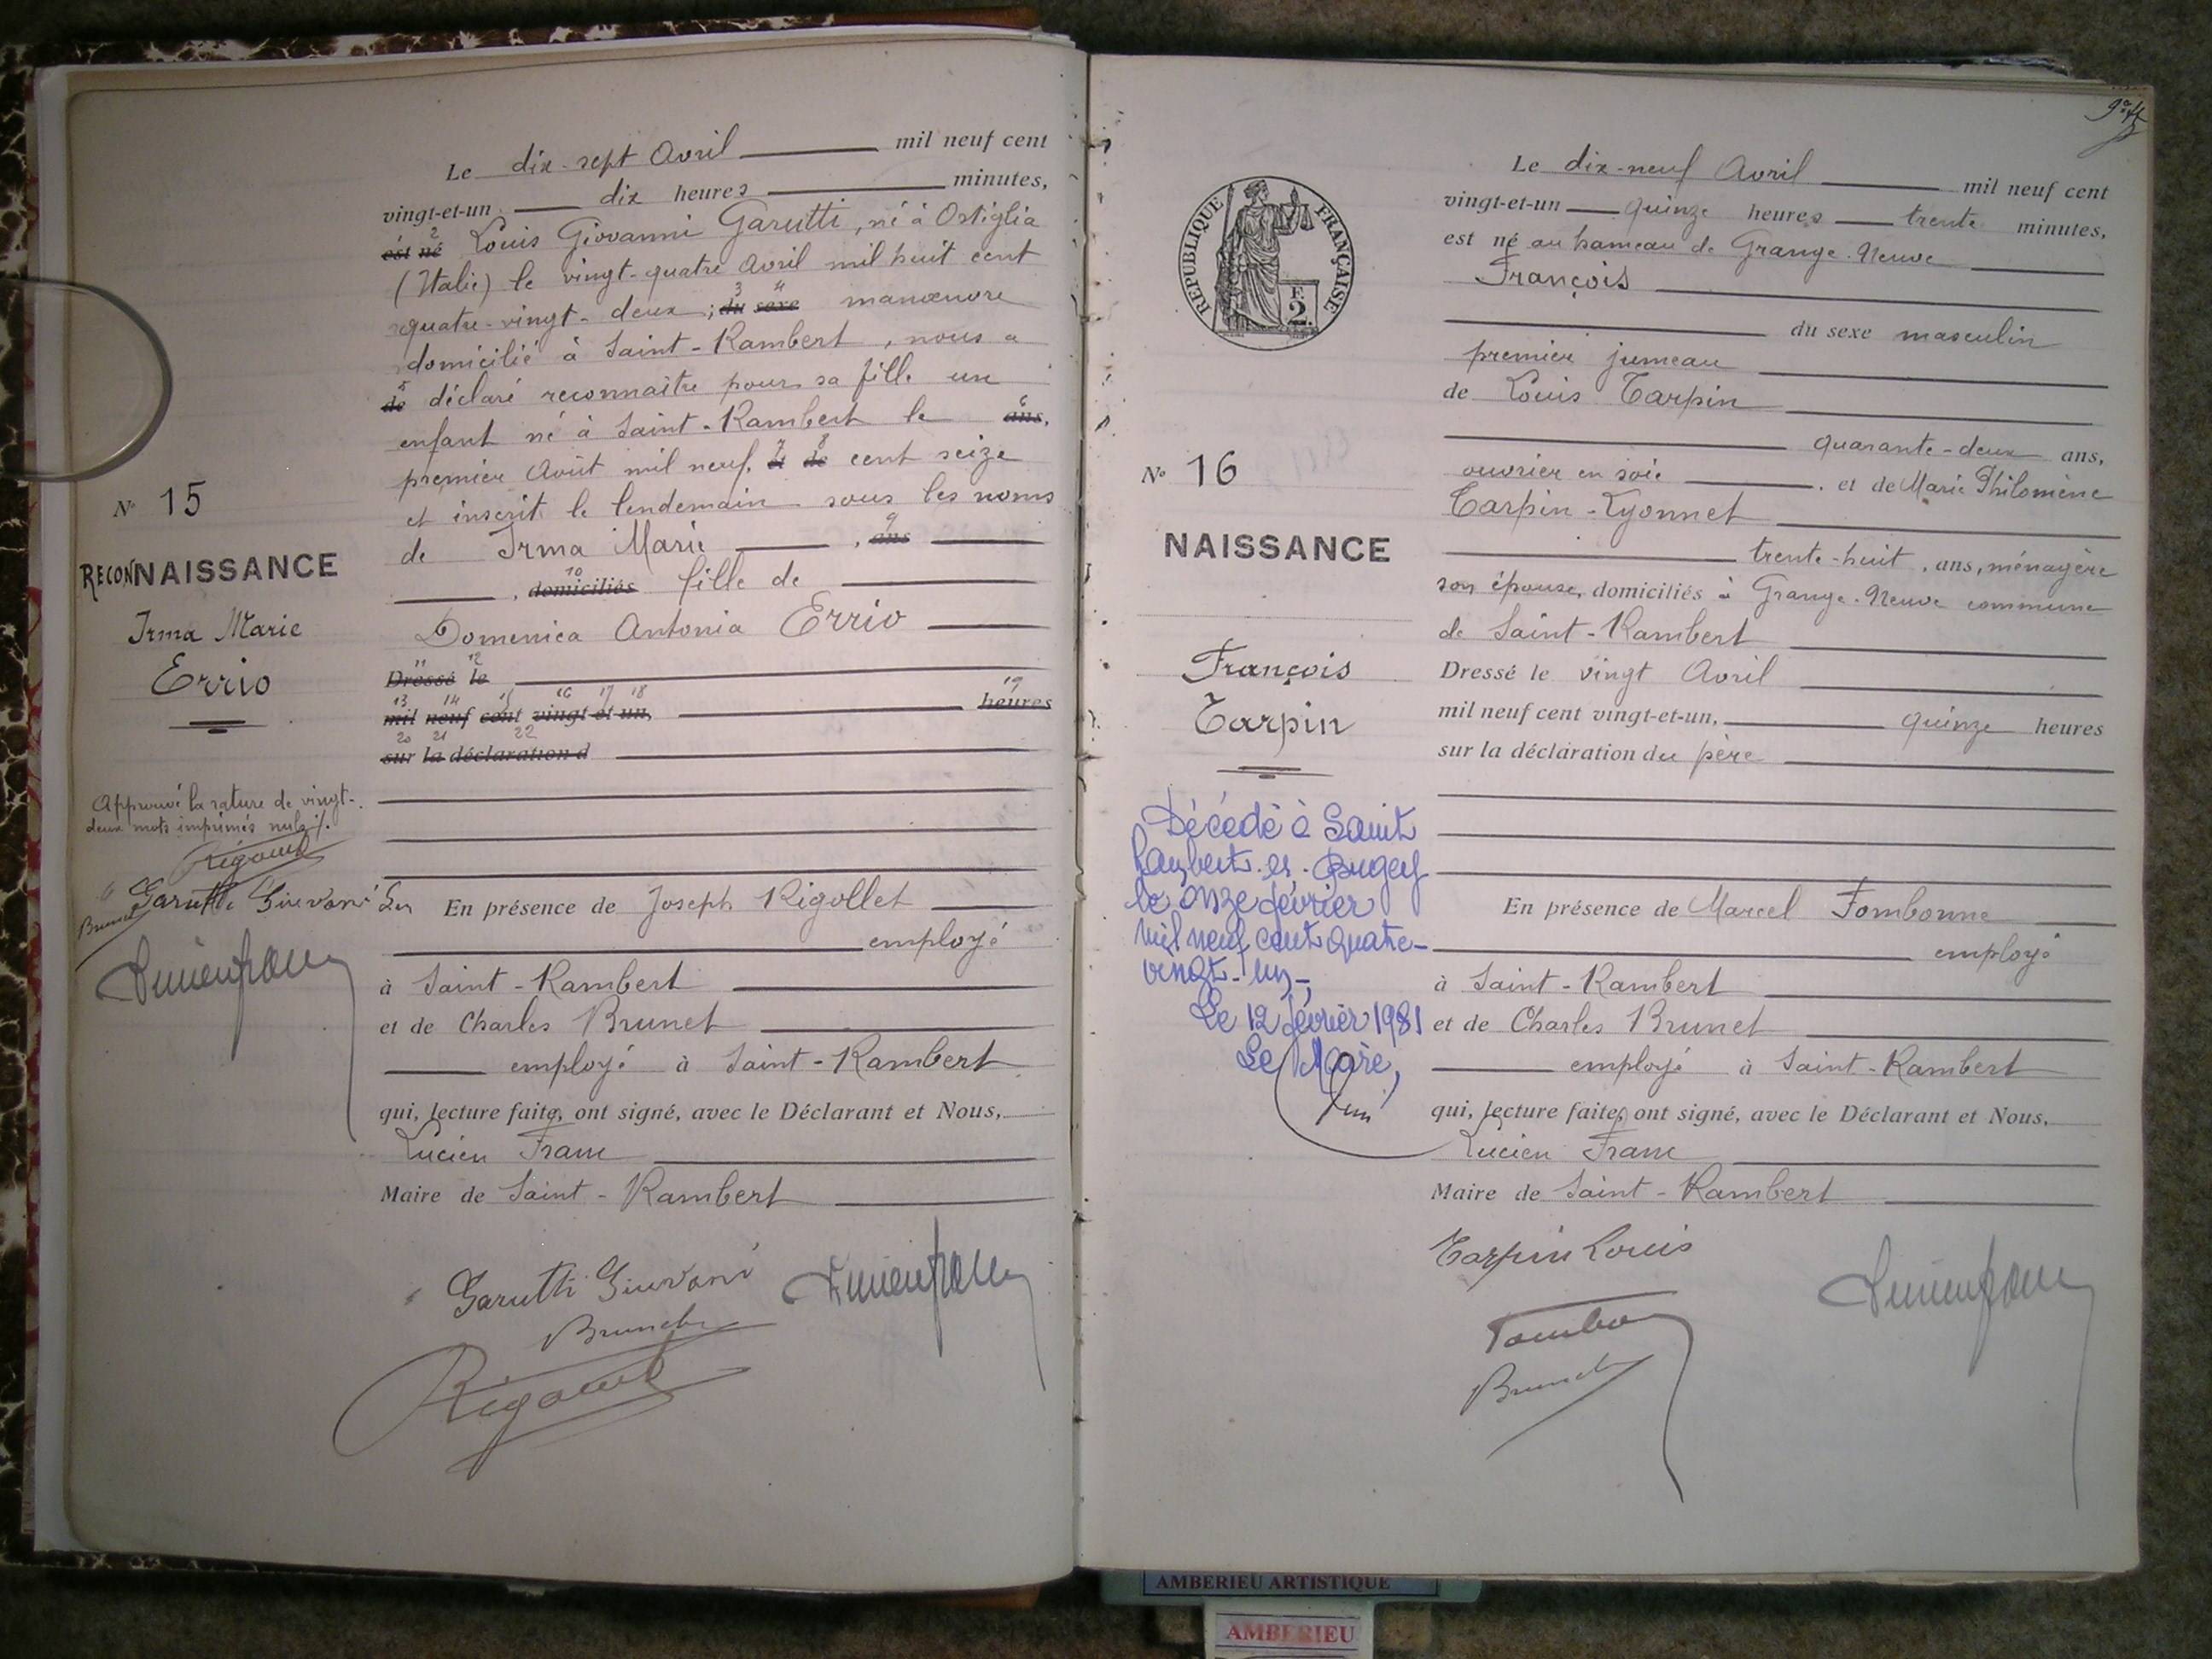 Le dix-sept Avril mil neuf cent
vingt-et-un dix heures minutes,
est né Louis Giovanni Garutti, né à Ostiglia
(Italie) le vingt-quatre Avril mil huit cent
quatre-vingt-deux; du sexe manœuvre
domicilié à Saint-Rambert, nous a
de déclaré reconnaître pour sa fille un
enfant né à Saint-Rambert le ans,
premier Août mil neuf. Et de cent seize
et inscrit le lendemain sous les noms
de Irma Marie , ans
, domiciliés fille de
Domenica Antonia Errio
Dressé le
mil neuf cent vingt et un, heures
sur la déclaration d
En présence de Joseph Rigollet
employé
à Saint-Rambert
et de Charles Brunet
employé à Saint-Rambert
qui, lecture faite, ont signé, avec le Déclarant et Nous,
Lucien Franc
Maire de Saint-Rambert
Garutti Giuvani
Brunet
N° 15
RECONNAISSANCE
Irma Marie
Errio
Approuvé la rature de vingt-
deux mots imprimés nuls
Garutti Giuvani
Brunet
REPUBLIQUE FRANÇAISE
2
N° 16
NAISSANCE
François
Tarpin
Décédé à Saint
Rambert-en-Bugey
le onze février
mil neuf cent quatre-
vingt-un-,
Le 12 février 1981
Le Maire,
Le dix-neuf Avril mil neuf cent
vingt-et-un quinze heures trente minutes,
est né au hameau de Grange-Neuve
François
du sexe masculin
premier jumeau
de Louis Tarpin
quarante-deux ans,
ouvrier en soie . et de Marie Philomène
Tarpin-Lyonnet
trente-huit, ans, ménagère
son épouse, domiciliés à Grange-Neuve commune
de Saint-Rambert
Dressé le vingt Avril
mil neuf cent vingt-et-un, quinze heures
sur la déclaration du père
En présence de Marcel Fombonne
employé
à Saint-Rambert
et de Charles Brunet
employé à Saint-Rambert
qui, lecture faite, ont signé, avec le Déclarant et Nous,
Lucien Franc
Maire de Saint-Rambert
Tarpin Louis
Brunet
AMBERIEU ARTISTIQUE
AMBERIEU